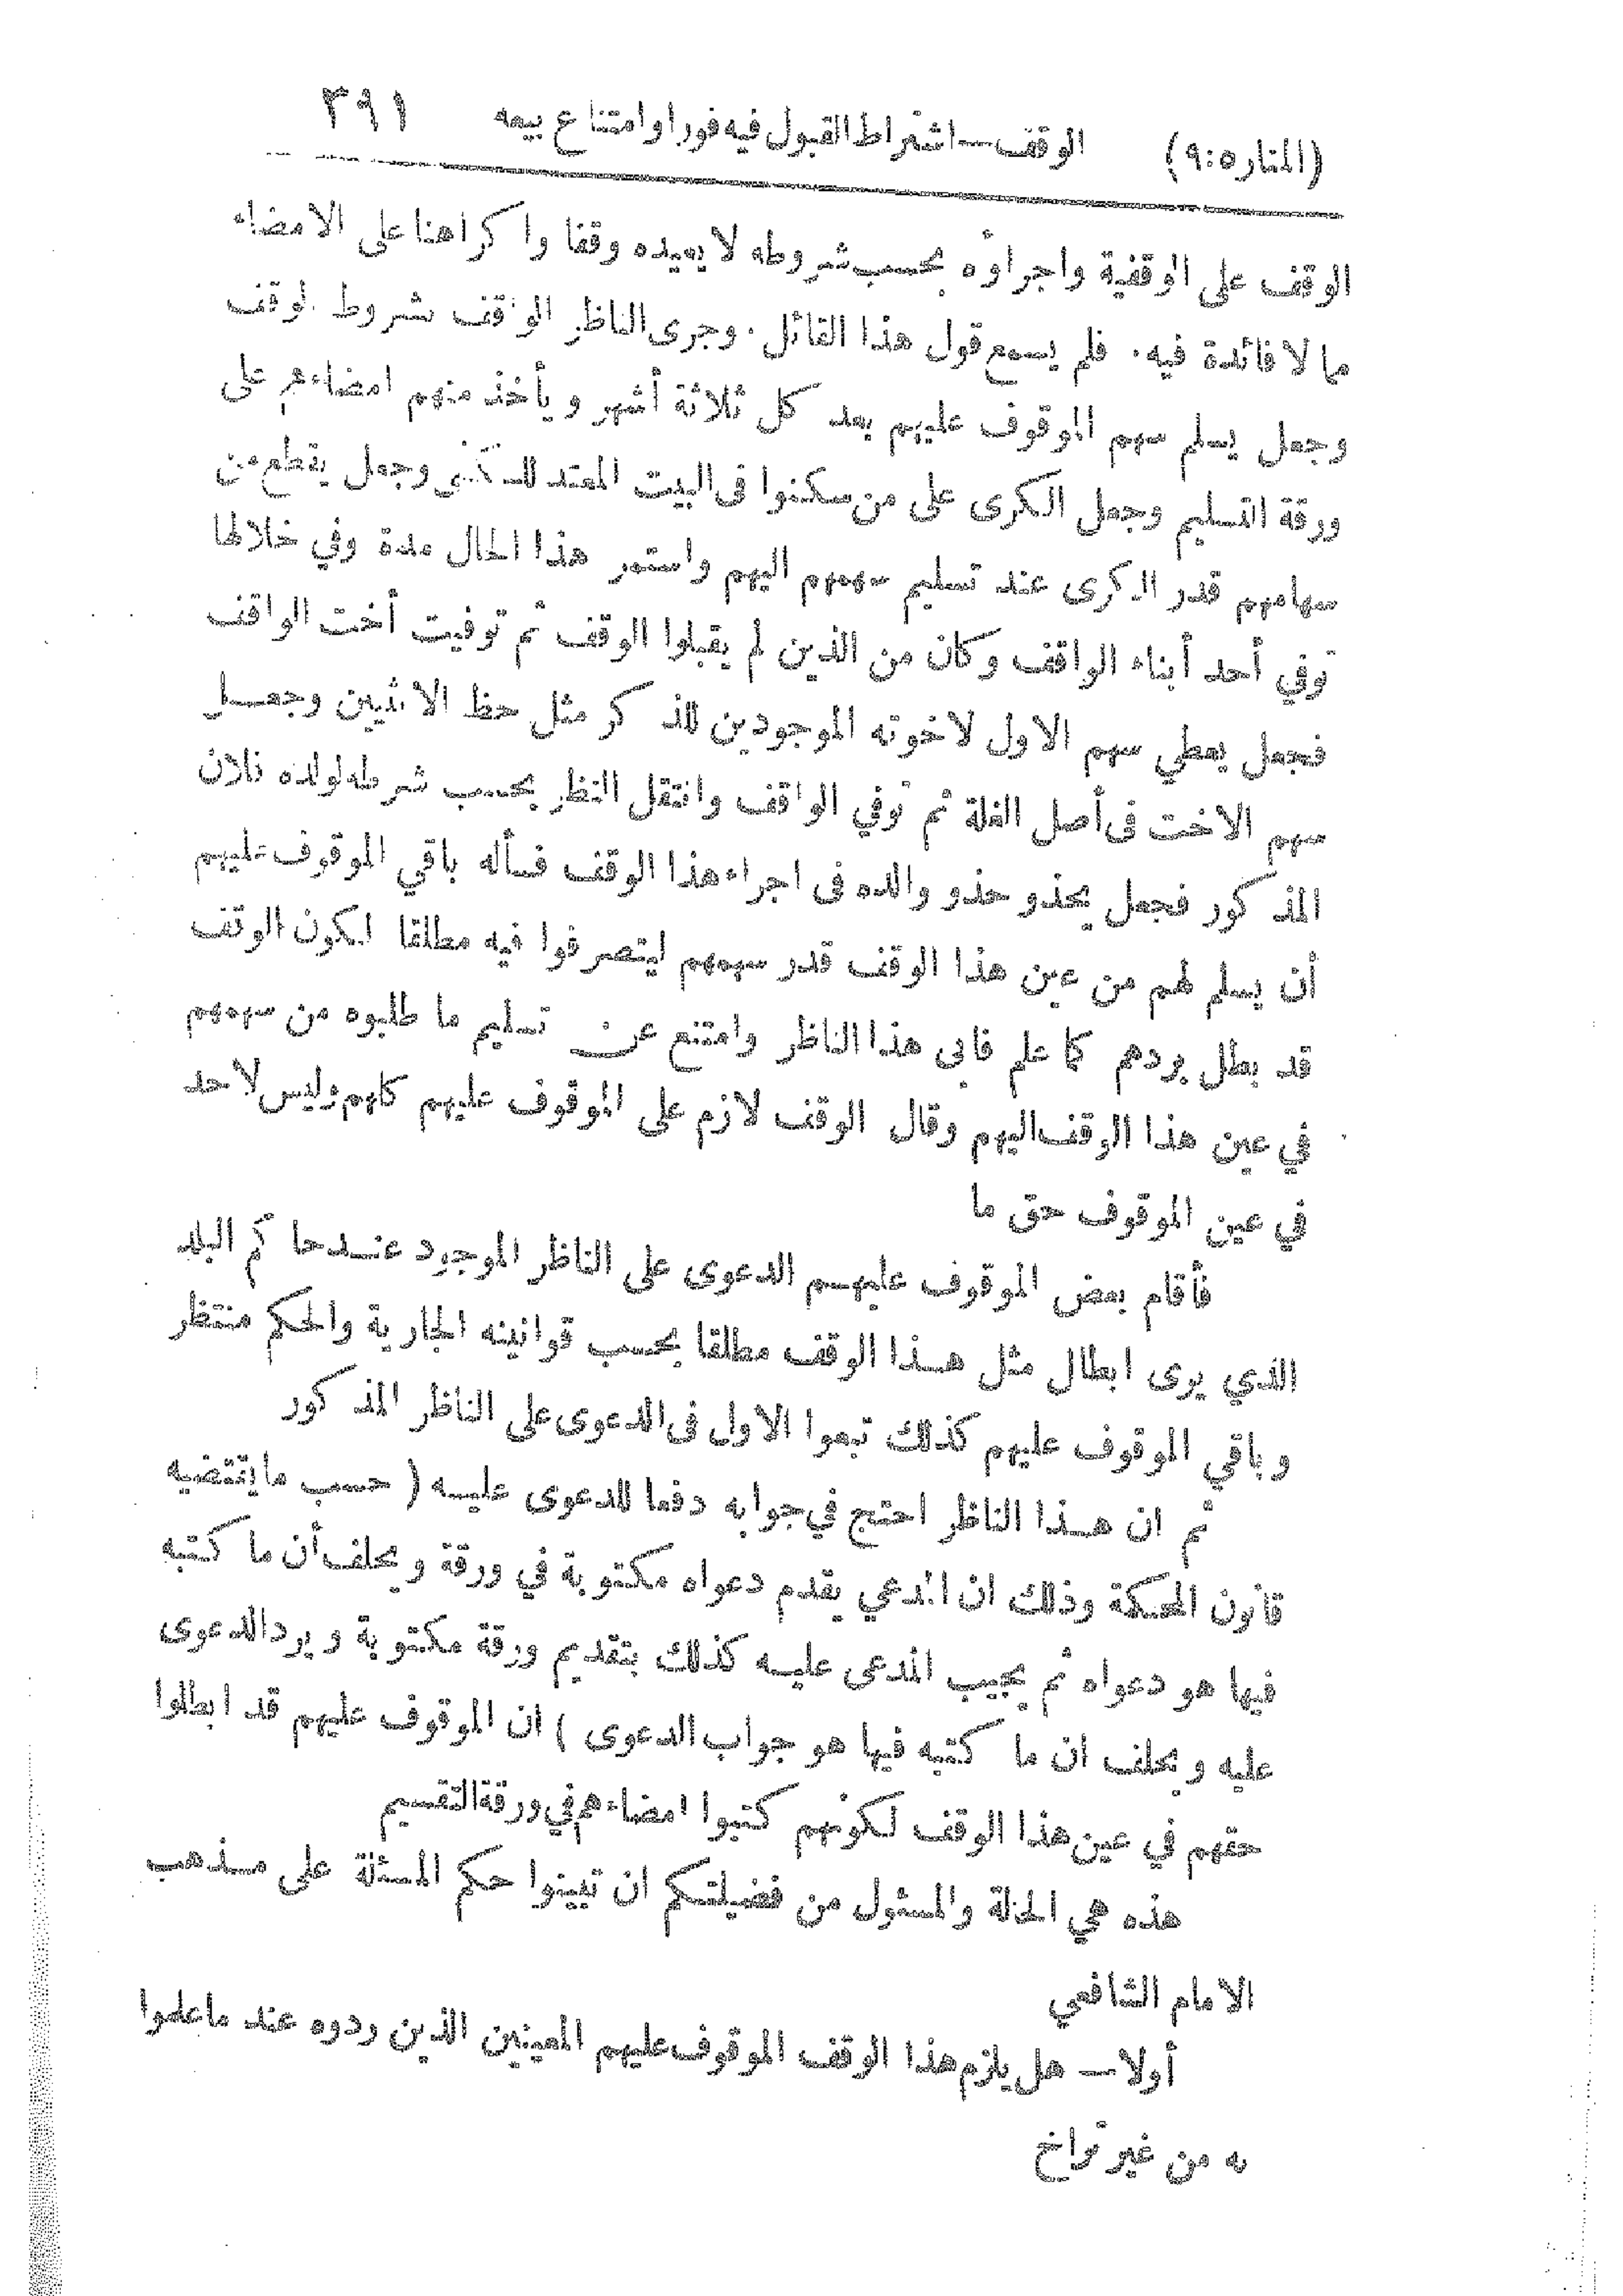 (المنار٥:٩) الوقف — اشتراط القبول فيه فورا وامتناع بيعه ٣٩١
الوقف على الوقفية واجراؤه بحسب شروطه لا يعيده وقفا واكراهنا على الامضاء
مما لا فائدة فيه. فلم يسمع قول هذا القائل. وجرى الناظر الواقف بشروط لوقف
وجعل يسلم سهم الموقوف عليهم بعد كل ثلاثة أشهر ويأخذ منهم امضاءهم على
ورقة التسليم وجعل الكرى على من سكنوا فى البيت المعتد للسكنى وجعل يقطع من
سهامهم قدر الكرى عند تسليم سهمهم اليهم واستمر هذا الحال مدة وفي خلالها
توفي أحد أبناء الواقف وكان من الذين لم يقبلوا الوقف ثم توفيت أخت الواقف
فجعل يعطي سهم الاول لاخوته الموجودين للذكر مثل حظ الانثيين وجعل
سهم الاخت فى أصل الغلة ثم توفي الواقف وانتقل النظر بحسب شرطه لولده فلان
المذكور فجعل يحذو حذو والده فى اجراء هذا الوقف فسأله باقي الموقوف عليهم
أن يسلم لهم من عين هذا الوقف قدر سهمهم ليتصرفوا فيه مطلقا لكون الوقف
قد بطل بردهم كما علم فابى هذا الناظر وامتنع عن تسليم ما طلبوه من سهمهم
في عين هذا الوقف اليهم وقال الوقف لازم على الموقوف عليهم كلهم وليس لاحد
في عين الموقوف حق ما
فأقام بعض الموقوف عليهم الدعوى على الناظر الموجود عند حاكم البلد
الذي يرى ابطال مثل هذا الوقف مطلقا بحسب قوانينه الجارية والحكم منتظر
وباقي الموقوف عليهم كذلك تبعوا الاول فى الدعوى على الناظر المذكور
ثم ان هذا الناظر احتج في جوابه دفعا للدعوى عليه ( حسب ما يقتضيه
قانون المحكمة وذلك ان المدعي يقدم دعواه مكتوبة في ورقة ويحلف أن ما كتبه
فيها هو دعواه ثم يجيب المدعى عليه كذلك بتقديم ورقة مكتوبة ويرد الدعوى
عليه ويحلف ان ما كتبه فيها هو جواب الدعوى ) ان الموقوف عليهم قد ابطلوا
حقهم في عين هذا الوقف لكونهم كتبوا امضاءهم في ورقة التقسيم
هذه هي الحالة والمسئول من فضيلتكم ان تبينوا حكم المسئلة على مذهب
الامام الشافعي
أولا — هل يلزم هذا الوقف الموقوف عليهم المعينين الذين ردوه عند ما علموا
به من غير تراخ